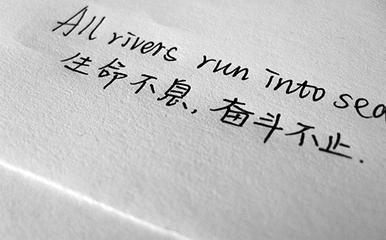 All rivers run into sea
生命不息，奋斗不止.